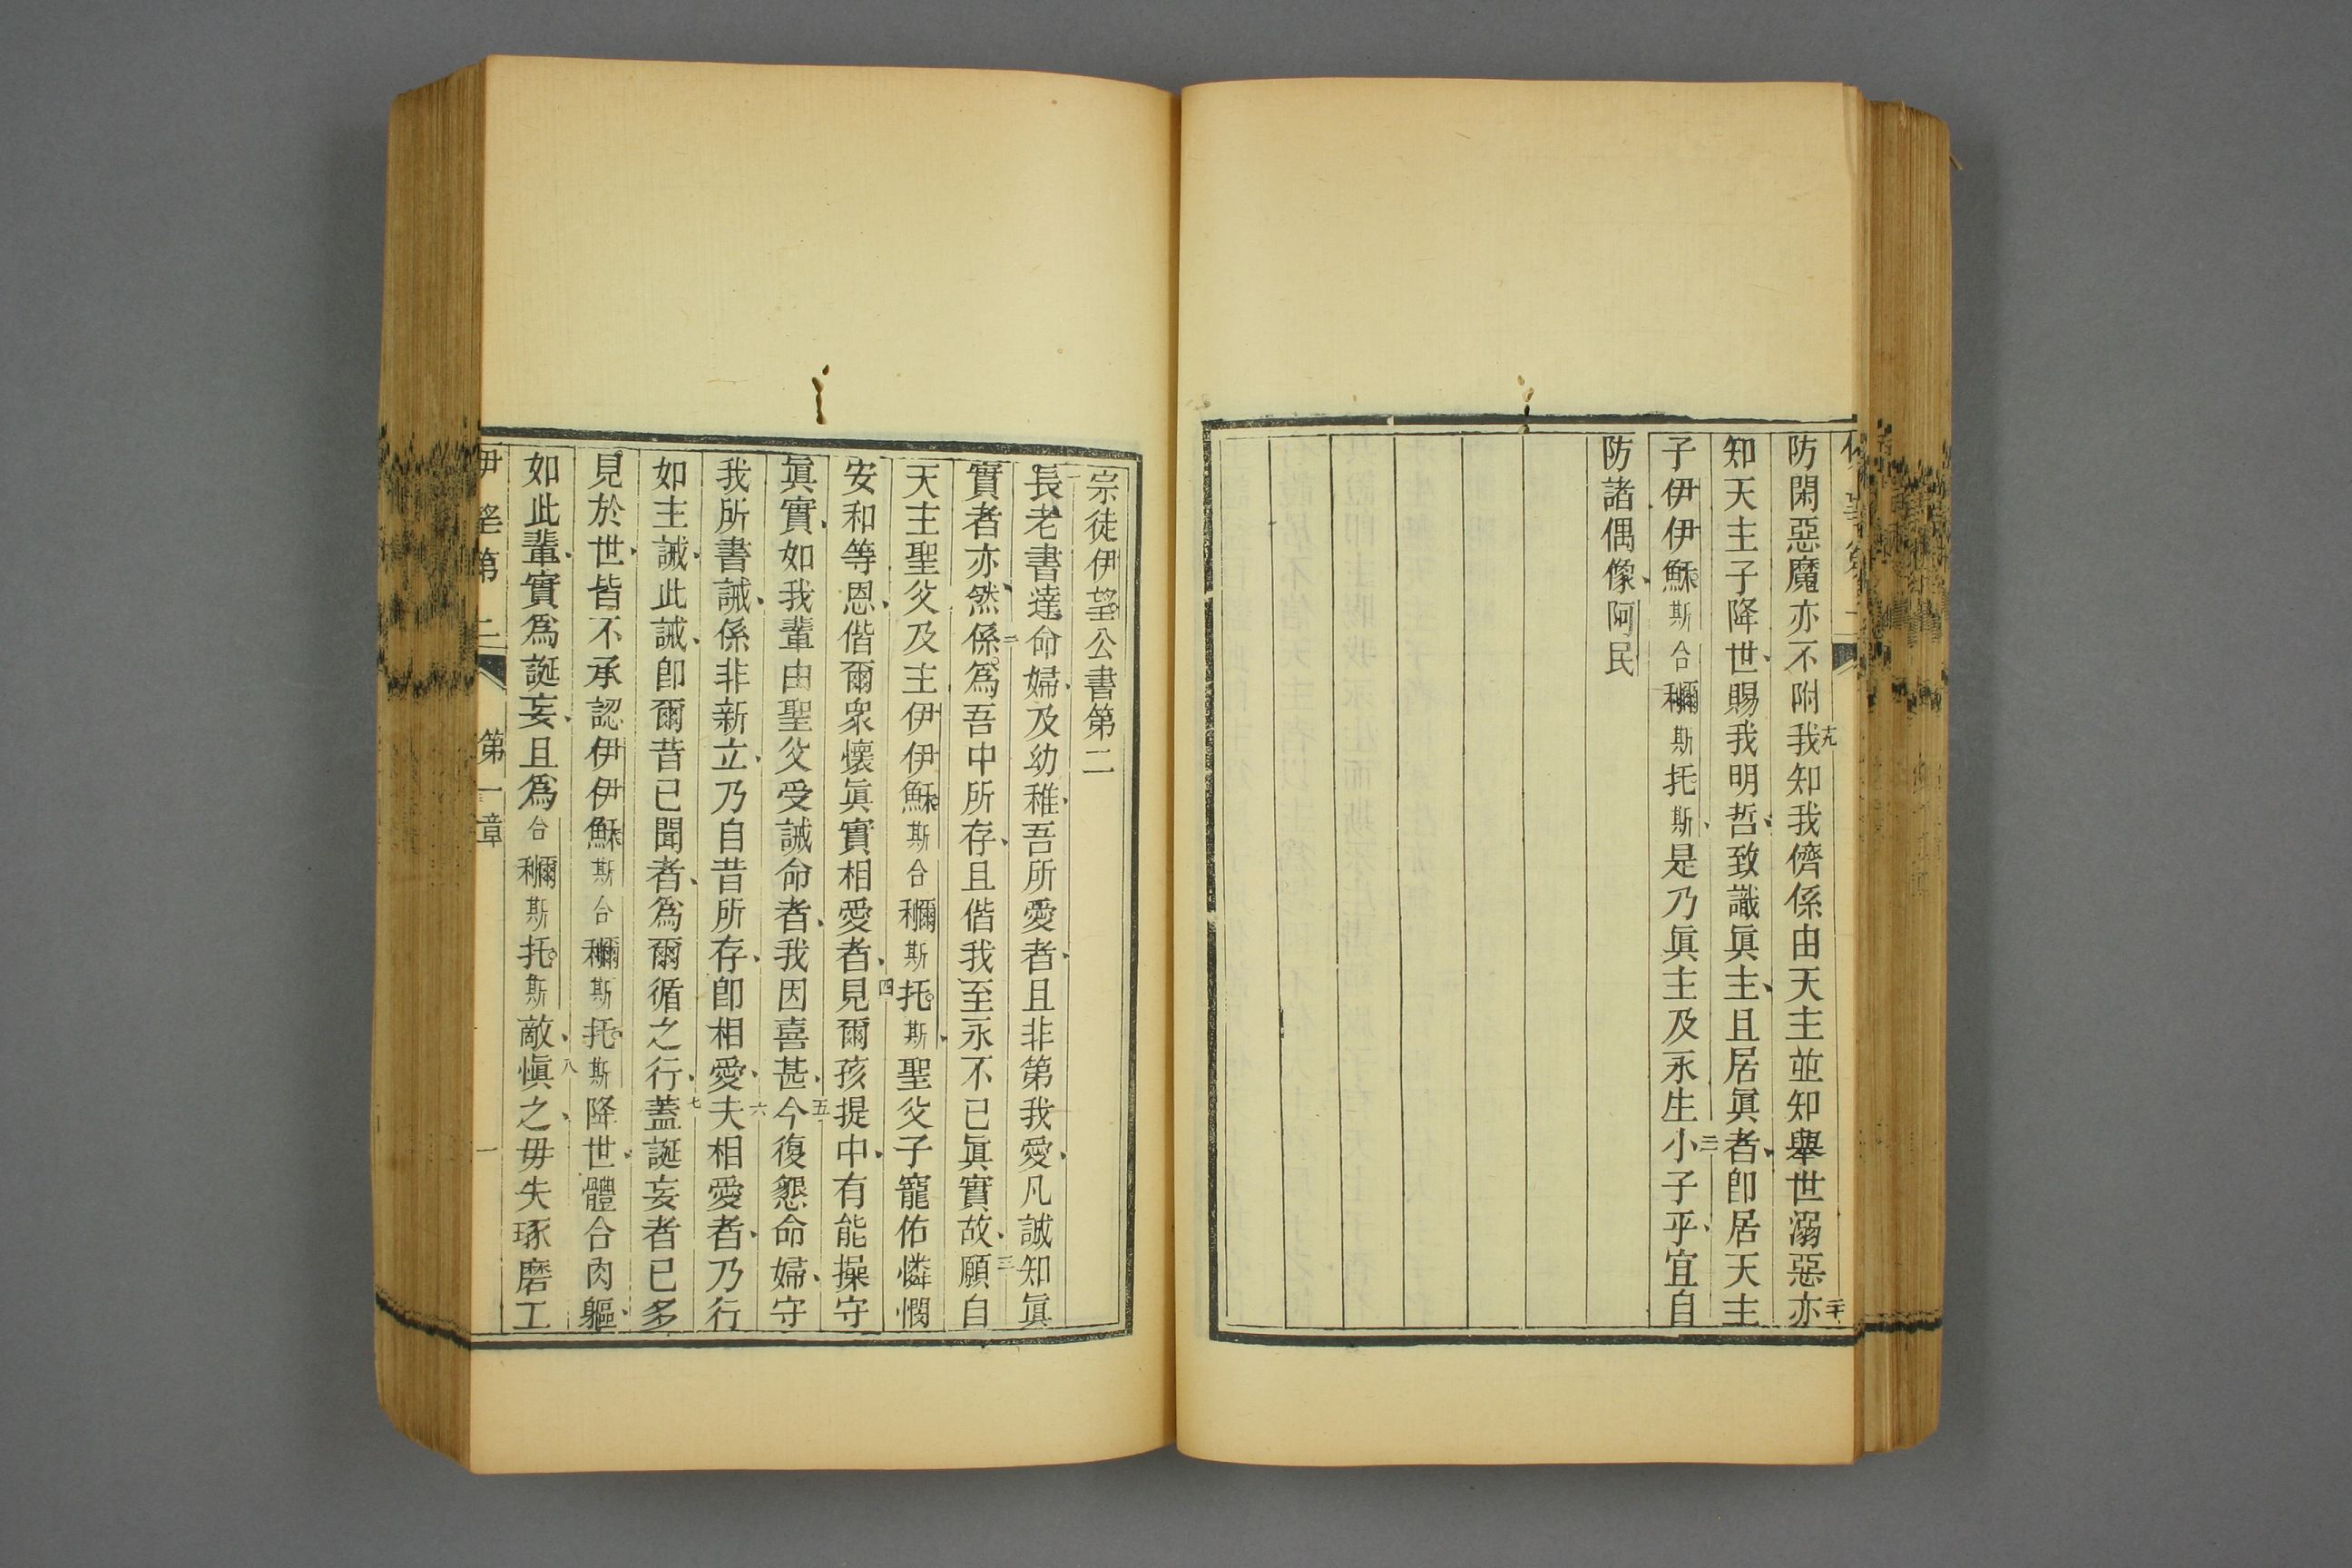 防閑惡魔亦不附十九我知我儕係由天主並知舉世溺惡二十亦
知天主子降世賜我明哲致識眞主且居眞者卽居天主
子伊伊穌斯合利爾斯托斯是乃眞主及永生二一小子乎宜自
防諸偶像阿民
宗徒伊望公書第二
一長老書達命婦及幼稚吾所愛者且非第我愛凡誠知眞
實者亦然二係爲吾中所存且偕我至永不已眞實故三願自
天主聖父及主伊伊穌斯合利爾斯托斯聖父子寵佑憐憫
安和等恩偕爾衆懷眞實相愛者四見爾孩提中有能操守
眞實如我輩由聖父受誡命者我因喜甚五今復懇命婦守
我所書誡係非新立乃自昔所存卽相愛六夫相愛者乃行
如主誡此誡卽爾昔已聞者爲爾循之行七蓋誕妄者已多
見於世皆不承認伊伊穌斯合利爾斯托斯降世體合肉軀
如此輩實爲誕妄且爲合利爾斯托斯敵八愼之毋失琢磨工
伊望第二 第一章 一